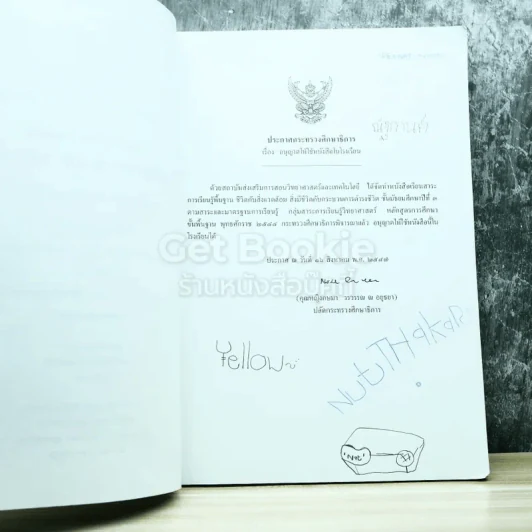 ประกาศกระทรวงศึกษาธิการ
เรื่อง อนุญาตให้ใช้หนังสือในโรงเรียน
ด้วยสถาบันส่งเสริมการสอนวิทยาศาสตร์และเทคโนโลยี ได้จัดทำหนังสือเรียนสาระ
การเรียนรู้พื้นฐาน ชีวิตกับสิ่งแวดล้อม สิ่งมีชีวิตกับกระบวนการดำรงชีวิต ชั้นมัธยมศึกษาปีที่ ๓
ตามสาระและมาตรฐานการเรียนรู้ กลุ่มสาระการเรียนรู้วิทยาศาสตร์ หลักสูตรการศึกษา
ขั้นพื้นฐาน พุทธศักราช ๒๕๔๔ กระทรวงศึกษาธิการพิจารณาแล้ว อนุญาตให้ใช้หนังสือนี้ใน
โรงเรียนได้
Get Bookie
ร้านหนังสือบุ๊คกี้
ประกาศ ณ วันที่ ๒๖ สิงหาคม พ.ศ. ๒๕๔๗
(คุณหญิงกษมา วรวรรณ ณ อยุธยา)
ปลัดกระทรวงศึกษาธิการ
Yellow
NutTHakaR
Not